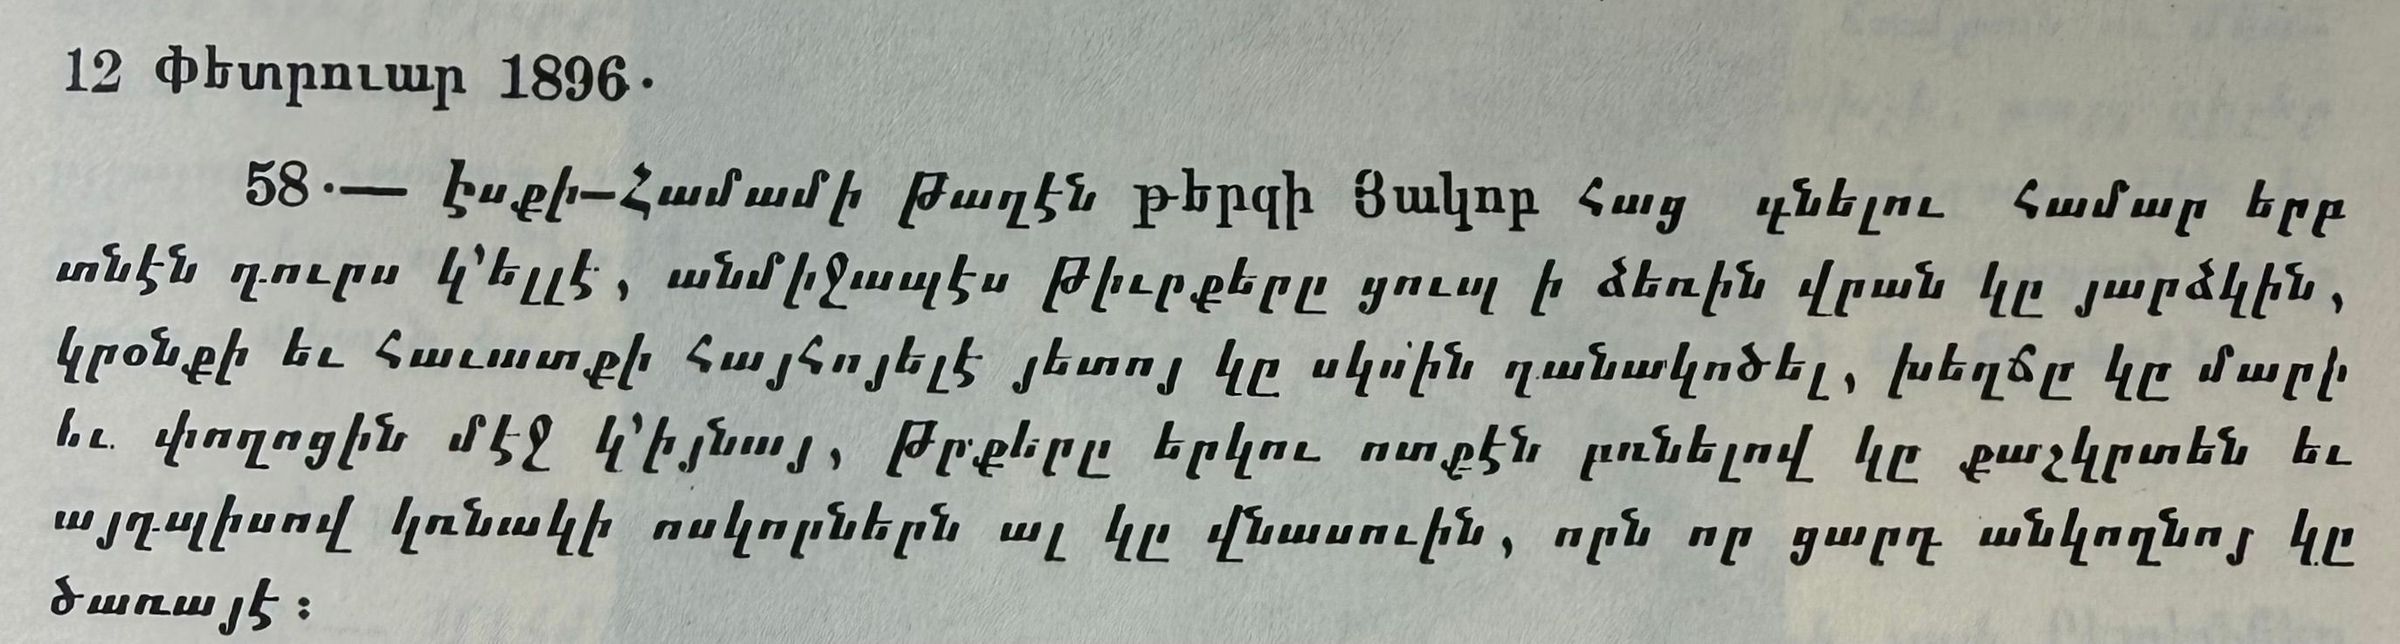 12 Փետրուար 1896.
58.— Էսքի-Համամի Թաղէն թերզի Յակոբ հաց գնելու համար երբ
տնէն դուրս կ՚ելլէ, անմիջապէս Թիւրքերը ցուպ ի ձեռին վրան կը յարձկին,
կրօնքի եւ հաւատքի հայհոյելէ յետոյ կը սկսին դանակոծել, խեղճը կը մարի
եւ փողոցին մէջ կ՚իյնայ, Թրքերը երկու ոտքէն բռնելով կը քաշկրտեն եւ
այդպիսով կռնակի ոսկորներն ալ կը վնասուին, որն որ ցարդ անկողնոյ կը
ծառայէ։